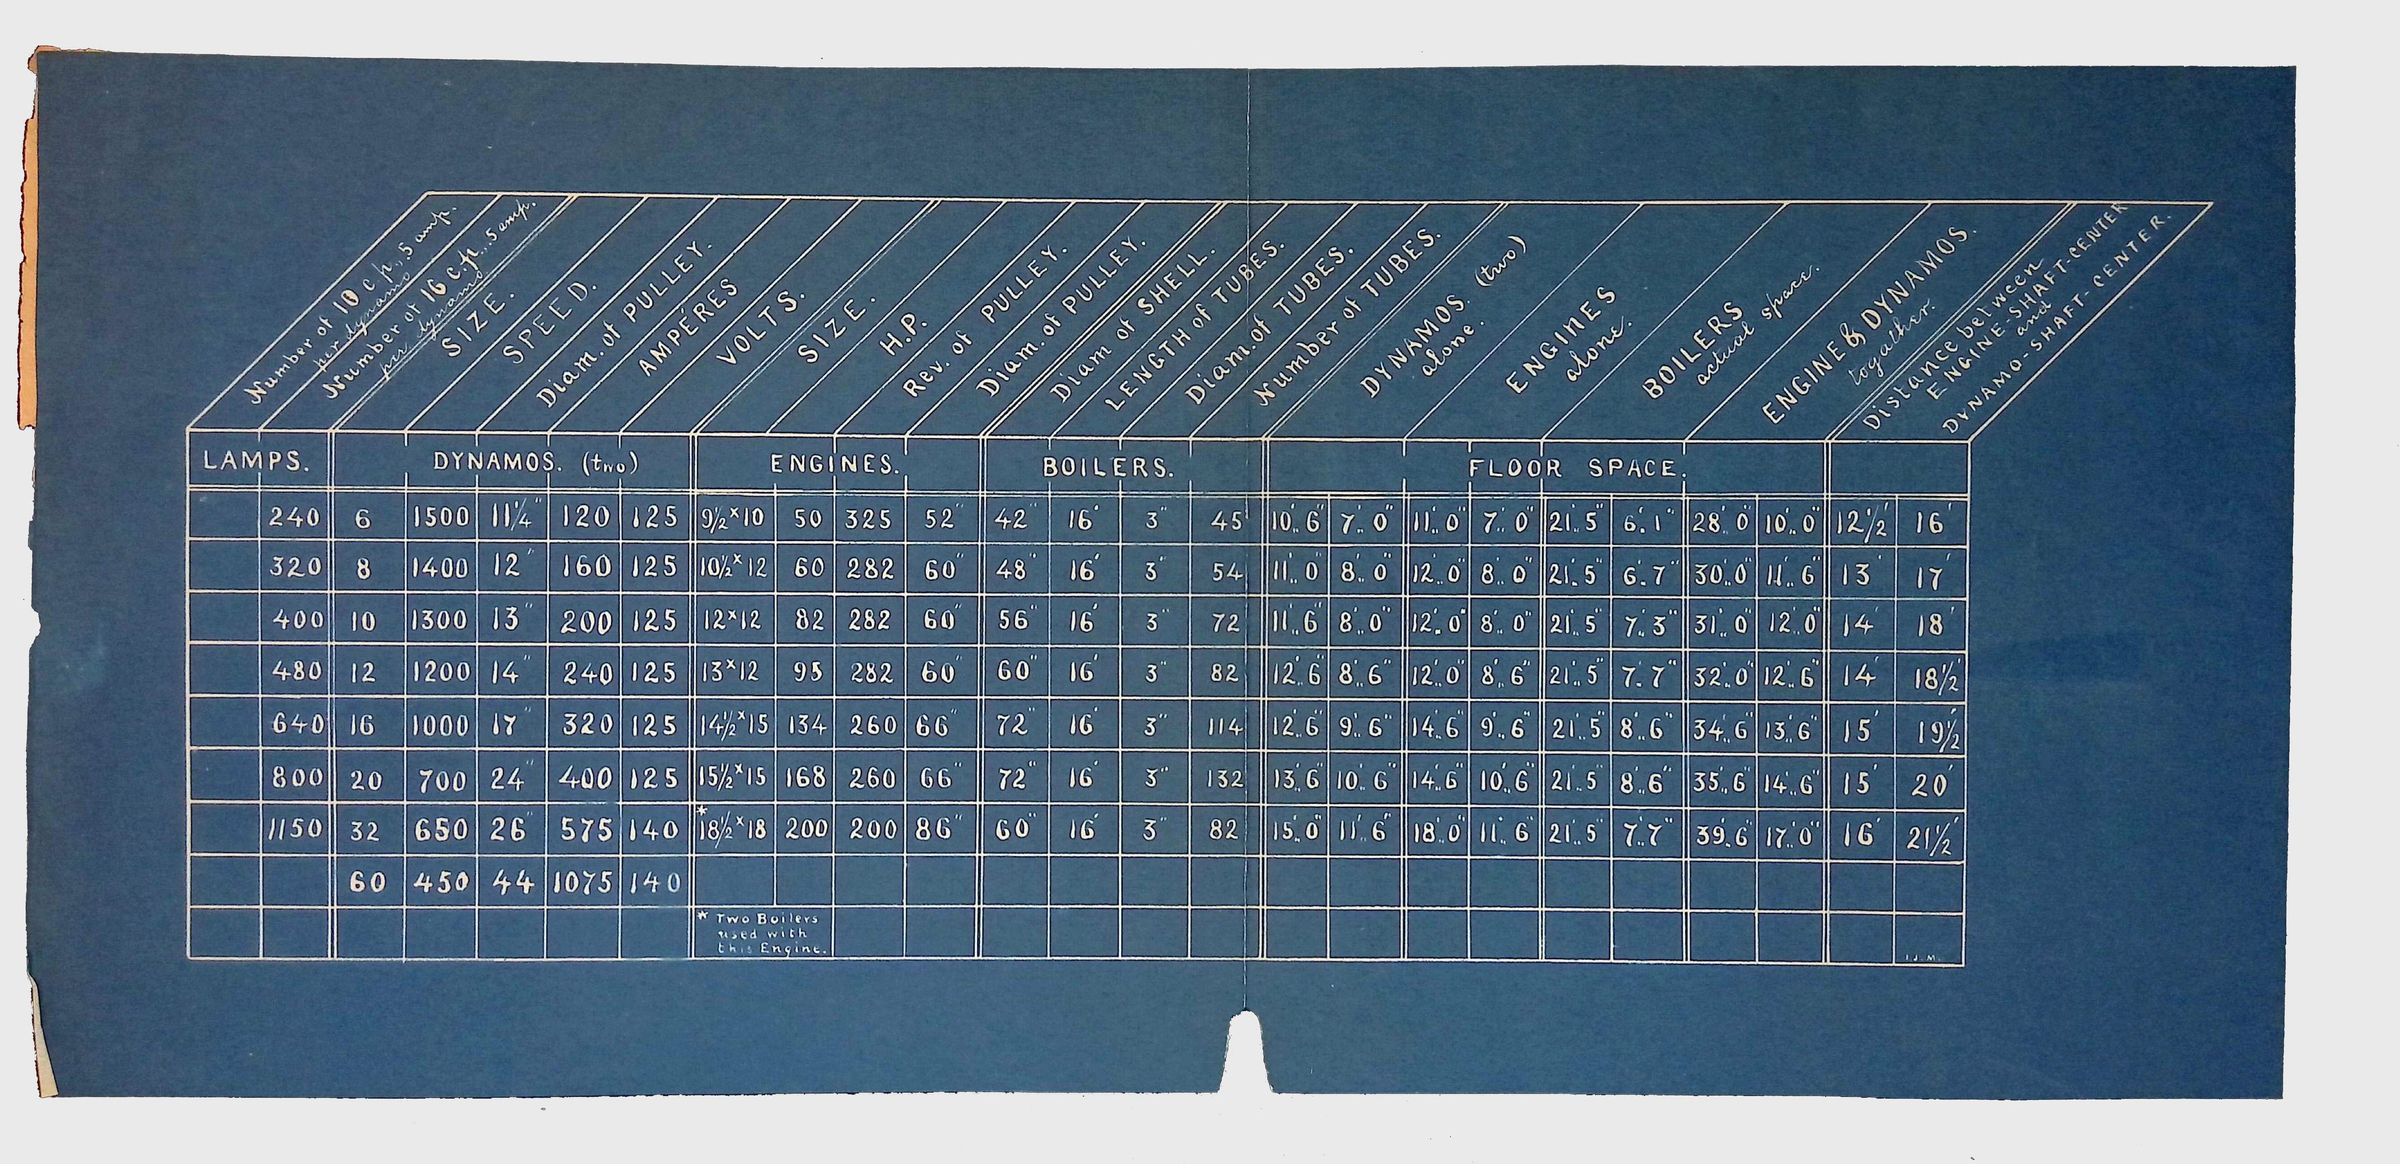 Number of 10 c.p., .5 amp.
per dynamo
Number of 16 c.p., .5 amp.
per dynamo
SIZE.
SPEED.
Diam. of PULLEY.
AMPÉRES
VOLTS.
SIZE.
H.P.
Rev. of PULLEY.
Diam. of PULLEY.
Diam of SHELL.
LENGTH of TUBES.
Diam. of TUBES.
Number of TUBES.
DYNAMOS. (two)
alone.
ENGINES
alone.
BOILERS
actual space.
ENGINE & DYNAMOS.
togather.
Distance between
ENGINE-SHAFT-CENTER
and
DYNAMO-SHAFT-CENTER.
LAMPS. DYNAMOS. (two) ENGINES. BOILERS. FLOOR SPACE.
240 6 1500 11¼" 120 125 9½×10 50 325 52" 42" 16' 3" 45 10'..6" 7'..0" 11'..0" 7'..0" 21'..5" 6'.1" 28'..0" 10'..0" 12½' 16'
320 8 1400 12" 160 125 10½×12 60 282 60" 48" 16' 3" 54 11'..0" 8'..0" 12'..0" 8'..0" 21'..5" 6'.7" 30'..0" 11'..6" 13' 17'
400 10 1300 13" 200 125 12×12 82 282 60" 56" 16' 3" 72 11'..6" 8'..0" 12'..0" 8'..0" 21'..5" 7'..3" 31'..0" 12'..0" 14' 18'
480 12 1200 14" 240 125 13×12 95 282 60" 60" 16' 3" 82 12'..6" 8'..6" 12'..0" 8'..6" 21'..5" 7'.7" 32'..0" 12'..6" 14' 18½'
640 16 1000 17" 320 125 14½×15 134 260 66" 72" 16' 3" 114 12'..6" 9'..6" 14'..6" 9'..6" 21'..5" 8'..6" 34'..6" 13'..6" 15' 19½'
800 20 700 24" 400 125 15½×15 168 260 66" 72" 16' 3" 132 13'..6" 10'..6" 14'..6" 10'..6" 21'..5" 8'..6" 35'..6" 14'..6" 15' 20'
1150 32 650 26" 575 140 *18½×18 200 200 86" 60" 16' 3" 82 15'..0" 11'..6" 18'..0" 11'..6" 21'..5" 7'..7" 39'..6" 17'..0" 16' 21½'
60 450 44 1075 140
* Two Boilers
used with
this Engine.
I.J.M.